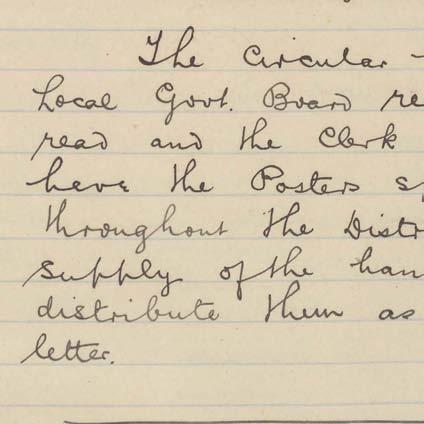 The Circular
Local Govt. Board re
read and the Clerk
have the Posters
throughout the Distr
supply of the han
distribute them as
letter.